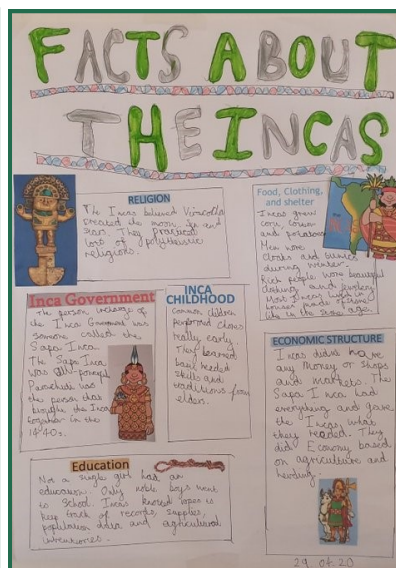 FACTS ABOUT
THE INCAS
RELIGION
The Incas believed Viracocha
created the moon, and
stars. They practiced
lots of polytheistic
religions.
Food, Clothing,
and shelter
Incas grew
corn,
and potatoes.
Men wore
cloaks and tunics
during winter.
Rich people wore beautiful
clothing and jewelery.
Most Incas lived in
houses made of stone
like in the stone age.
Inca Government
The person incharge of
the Inca Government was
someone called the
Sapa Inca.
The Sapa Inca
was all-powerful
Pachacuti was
the person that
brought the Inca
together in the
14'40s.
INCA
CHILDHOOD
Common children
performed chores
really early.
They learned
basic needed
skills and
traditions from
elders.
ECONOMIC STRUCTURE
Incas didn't have
any money or shops
and markets. The
Sapa Inca had
everything and gave
the Incas what
they needed. They
did Economy based
on agriculture and
herding.
Education
Not a single girl had an
education. Only noble boys went
to School. Incas knotted ropes to
keep track of records, supplies,
population data and agricultural
inventories.
29 of 20